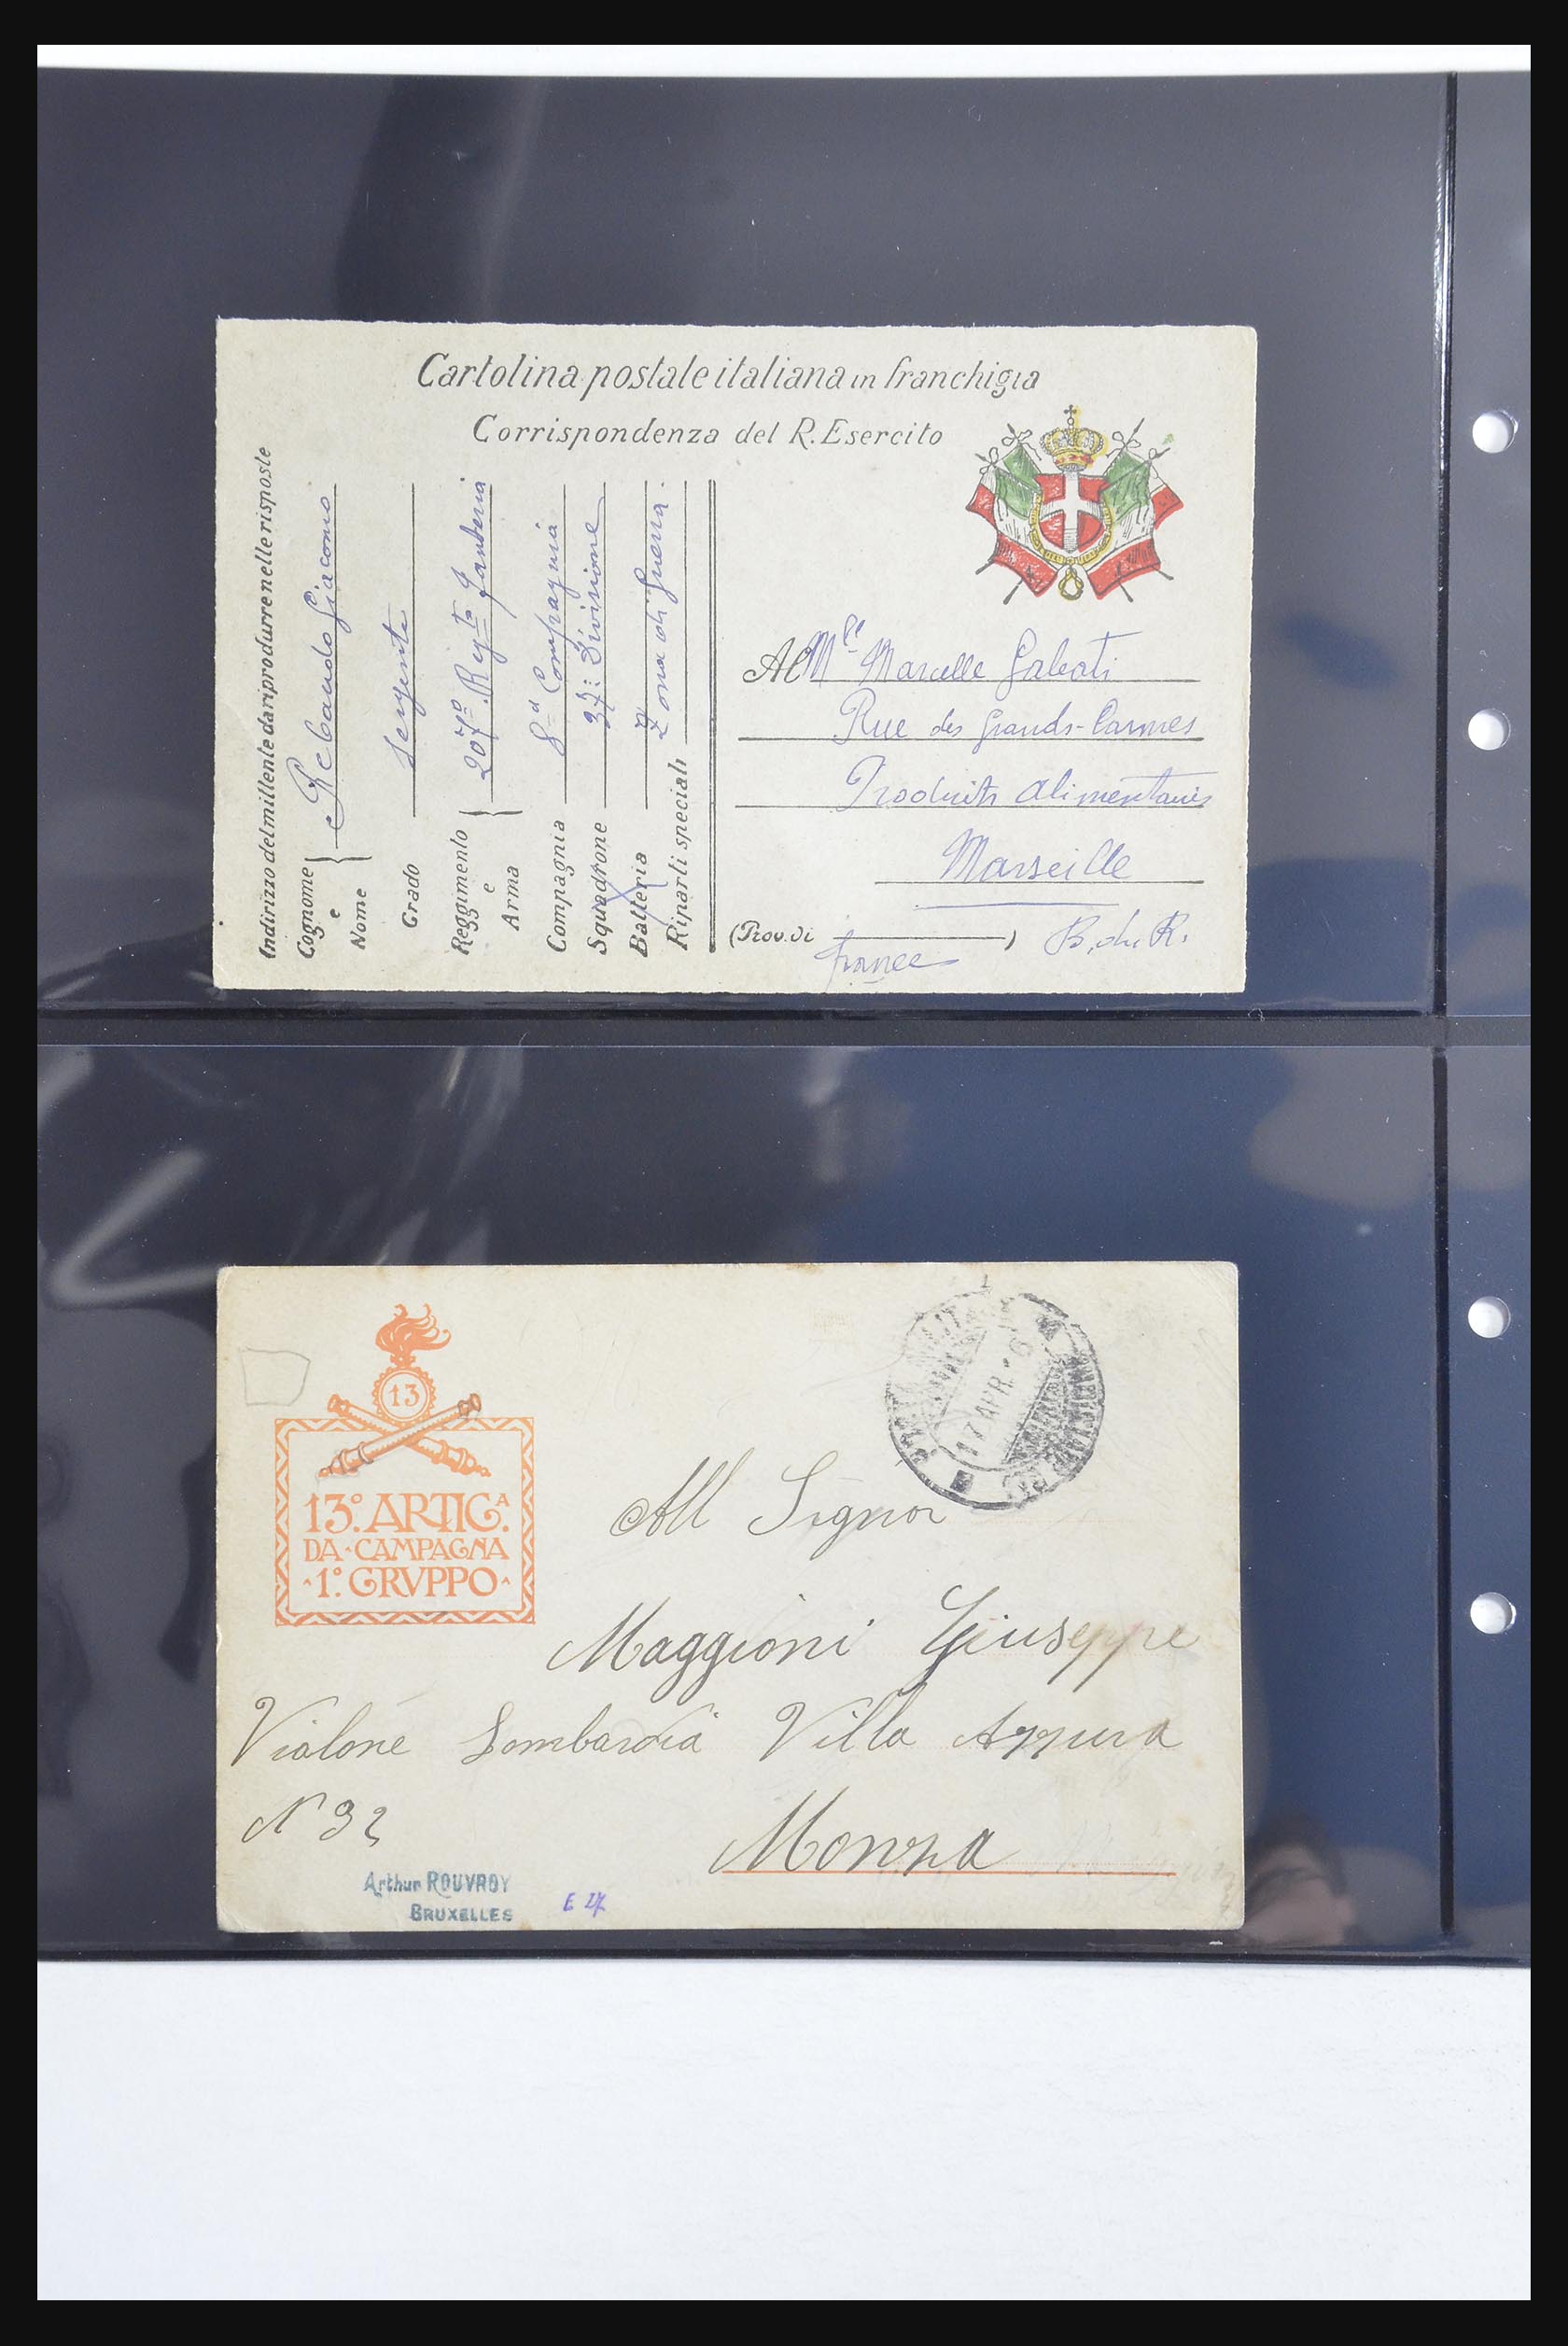 Cartolina postale italiana in franchigia
Corrispondenza del R. Esercito
Indirizzo del mittente da riprodurre nelle risposte
Cognome e Nome
Rebaudo Giacomo
Grado
Sergente
Reggimento e Arma
207º Regto Fanteria
Compagnia
8a Compagnia
Squadrone
Divisione
Batteria
Riparti speciali
Zona di guerra
Al Mlle Marcelle Galeati
Rue des Grands-Carmes
Produits Alimentaires
Marseille
(Prov. di ) B. du R.
france
13
13º. ARTIGA.
DA CAMPAGNA
1º. GRVPPO
17 APR. 16
All Signor
Maggioni Giuseppe
Vialone Lombardia Villa Azzura
N 32
Monza
Arthur ROUVROY
BRUXELLES
E 27